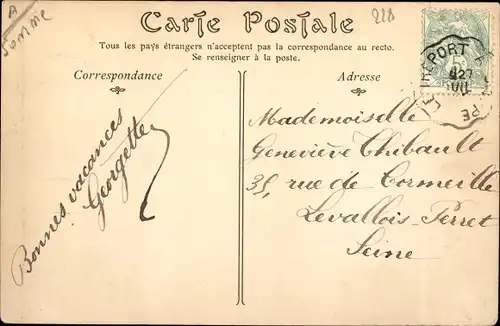 A
Somme
Carte Postale
218
Tous les pays étrangers n'acceptent pas la correspondance au recto.
Se renseigner à la poste.
Correspondance
Adresse
LE TREPORT
27
Bonnes vacances
Georgette
Mademoiselle
Geneviève Thibault
35, rue de Cormeille
Levallois-Perret
Seine